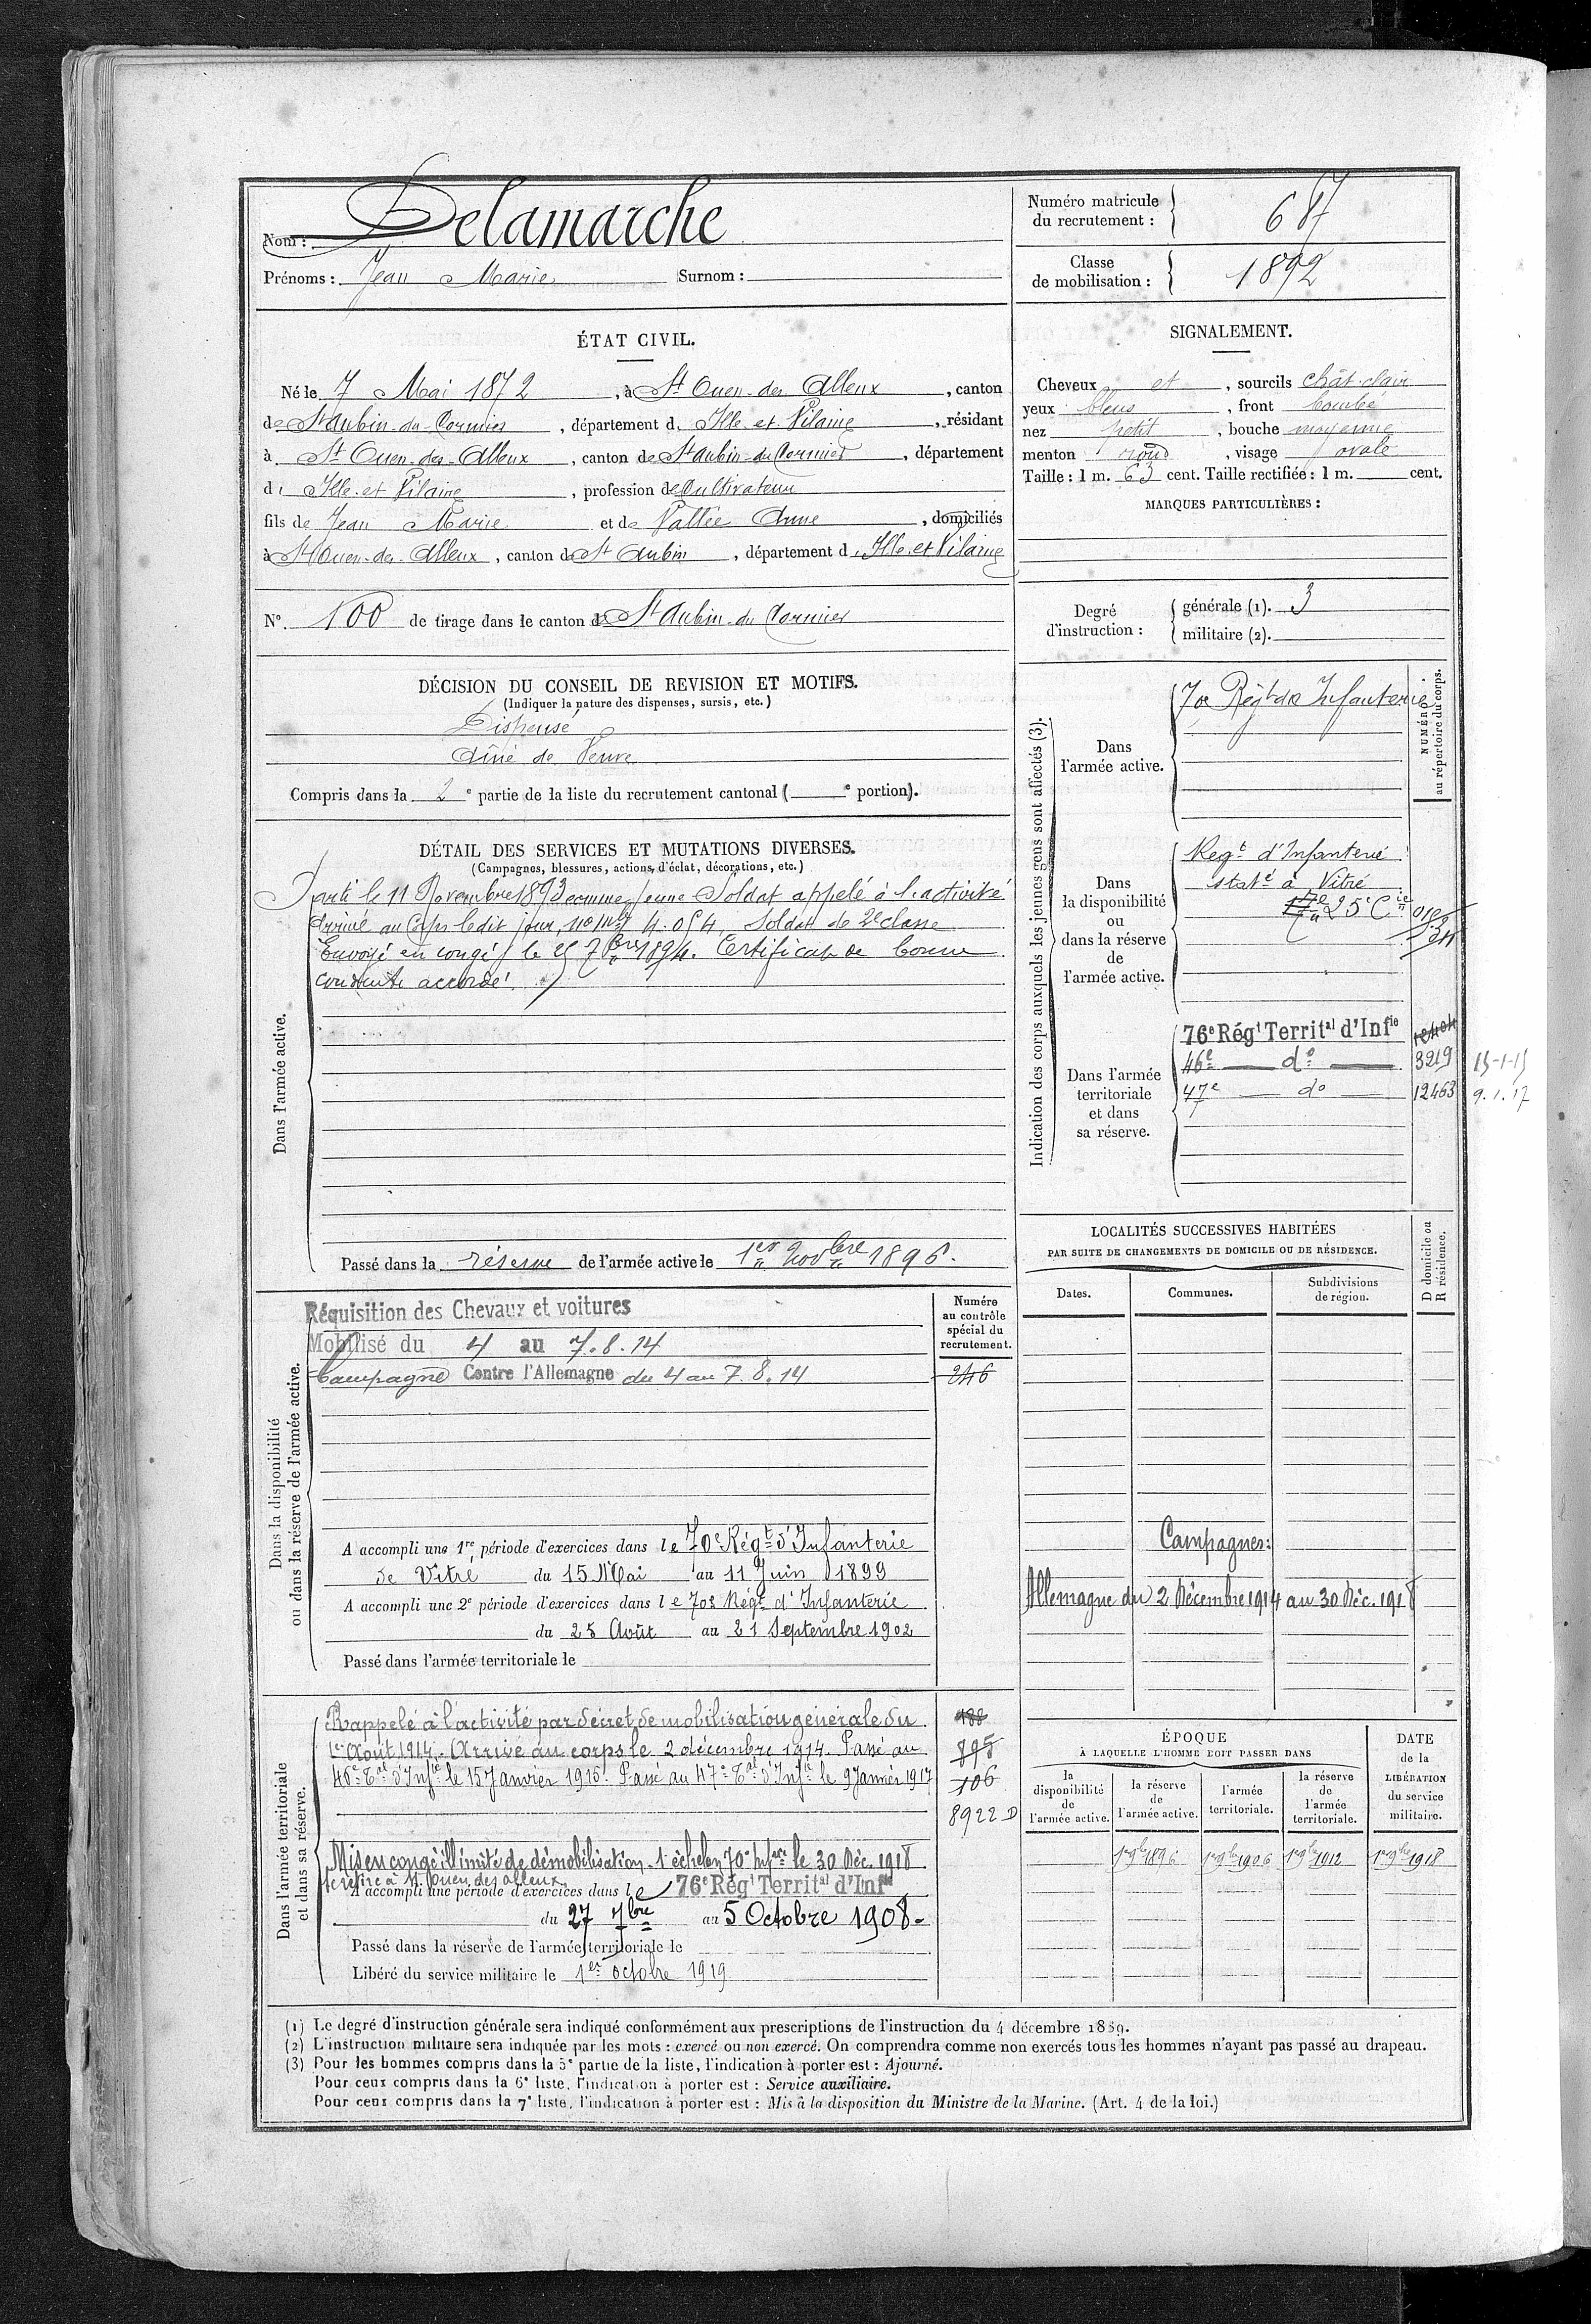 Nom : Delamarche
Prénoms : Jean Marie Surnom :
Numéro matricule du recrutement : 687
Classe de mobilisation : 1892
ÉTAT CIVIL.
Né le 7 Mai 1872, à St Ouen-des-Alleux, canton
de St Aubin-du-Cormier, département d. Ille et Vilaine, résidant
à St Ouen-des-Alleux, canton de St Aubin-du-Cormier, département
d. Ille et Vilaine, profession de Cultivateur
fils de Jean Marie et de Vallée Anne, domiciliés
à St Ouen-des-Alleux, canton de St Aubin, département d. Ille et Vilaine
N° 100 de tirage dans le canton de St Aubin-du-Cormier
SIGNALEMENT.
Cheveux et, sourcils chât. clair
yeux bleus, front bombé
nez petit, bouche moyenne
menton rond, visage ovale
Taille : 1 m. 63 cent. Taille rectifiée : 1 m. cent.
MARQUES PARTICULIÈRES :
Degré d'instruction : générale (1). 3
militaire (2).
DÉCISION DU CONSEIL DE REVISION ET MOTIFS.
(Indiquer la nature des dispenses, sursis, etc.)
Dispensé
Aîné de Veuve
Compris dans la 2e partie de la liste du recrutement cantonal ( e portion).
DÉTAIL DES SERVICES ET MUTATIONS DIVERSES.
(Campagnes, blessures, actions d'éclat, décorations, etc.)
Dans l'armée active.
Parti le 11 Novembre 1893 comme jeune Soldat appelé à l'activité
Arrivé au Corps ledit jour, no mle 4.054, Soldat de 2e classe
Envoyé en congé le 25 7bre 1894. Certificat de bonne
conduite accordé.
Passé dans la réserve de l'armée active le 1er Novbre 1896.
Indication des corps auxquels les jeunes gens sont affectés (3).
NUMÉRO au répertoire du corps.
Dans l'armée active.
70e Régt de Infanterie
Dans la disponibilité ou dans la réserve de l'armée active.
Regt d'Infanterie
statné à Vitré
25e Cie
Dans l'armée territoriale et dans sa réserve.
76e Régt Territal d'Infie
46e do 3219 15-1-15
47e do 12463 9.1.17
LOCALITÉS SUCCESSIVES HABITÉES
PAR SUITE DE CHANGEMENTS DE DOMICILE OU DE RÉSIDENCE.
Dates. Communes. Subdivisions de région. D domicile ou R résidence.
Campagnes :
Allemagne du 2 Décembre 1914 au 30 Déc. 1918
Dans la disponibilité ou dans la réserve de l'armée active.
Numéro au contrôle spécial du recrutement.
Réquisition des Chevaux et voitures
Mobilisé du 4 au 7.8.14
Campagne Contre l'Allemagne du 4 au 7.8.14
246
A accompli une 1re période d'exercices dans le 70e Régt d'Infanterie
de Vitré du 15 Mai au 11 Juin 1899
A accompli une 2e période d'exercices dans le 70e Régt d'Infanterie
du 25 Août au 21 Septembre 1902
Passé dans l'armée territoriale le
Dans l'armée territoriale et dans sa réserve.
Rappelé à l'activité par décret de mobilisation générale du
1er Août 1914. Arrivé au corps le 2 décembre 1914. Passé au
46e Tal d'Infie le 15 Janvier 1915. Passé au 47e Tal d'Infie le 9 Janvier 1917
188
895
106
8922 D
Mis en congé illimité de démobilisation 1er échelon 70e Infie le 30 Déc. 1918
se retire à St Ouen des Alleux
A accompli une période d'exercices dans le 76e Régt Territal d'Infie
du 27 7bre au 5 Octobre 1908.
Passé dans la réserve de l'armée territoriale le
Libéré du service militaire le 1er octobre 1919
ÉPOQUE
À LAQUELLE L'HOMME DOIT PASSER DANS
la disponibilité de l'armée active. la réserve de l'armée active. l'armée territoriale. la réserve de l'armée territoriale.
DATE de la LIBÉRATION du service militaire.
1er 9bre 1896 1er 9bre 1906 1er 9bre 1912 1er 9bre 1918
(1) Le degré d'instruction générale sera indiqué conformément aux prescriptions de l'instruction du 4 décembre 1889.
(2) L'instruction militaire sera indiquée par les mots : exercé ou non exercé. On comprendra comme non exercés tous les hommes n'ayant pas passé au drapeau.
(3) Pour les hommes compris dans la 5e partie de la liste, l'indication à porter est : Ajourné.
Pour ceux compris dans la 6e liste, l'indication à porter est : Service auxiliaire.
Pour ceux compris dans la 7e liste, l'indication à porter est : Mis à la disposition du Ministre de la Marine. (Art. 4 de la loi.)